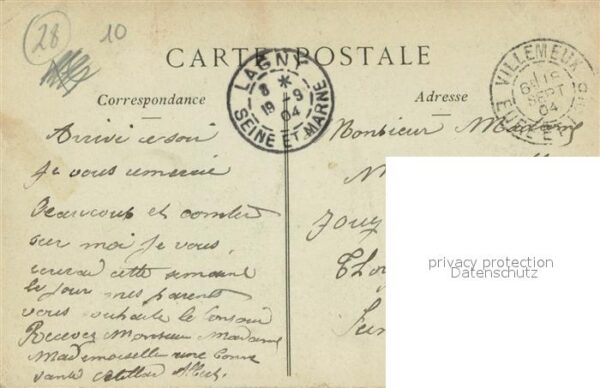 28 10
CARTE POSTALE
LAGNY
8 *
19 -9
04
SEINE ET MARNE
VILLEMEUX
6E 18
SEPT
04
EURE-ET-LOIR
Correspondance
Adresse
Arrivé ce soir
Je vous remercie
beaucoup et compter
sur moi Je vous
cette semaine
le jour mes parents
vous souhaite le bonsoir
Recevez Monsieur Madame
Mademoiselle une bonne
santé
Monsieur Madame
Jouy
privacy protection
Datenschutz